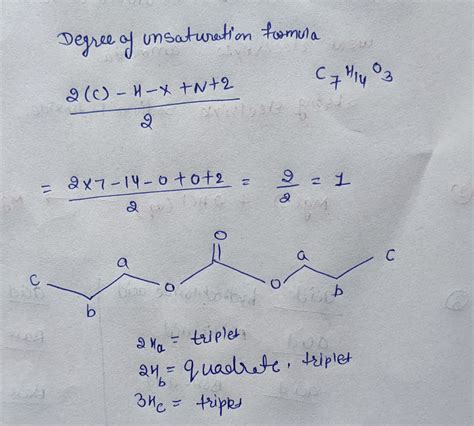 Degree of unsaturation formula
2(C) - H - X + N + 2 / 2
C7H14O3
= 2x7-14-0+0+2 / 2 = 2/2 = 1
O
a a c
c O O
b b
2Ha = triplet
2Hb = quadrate, triplet
3Hc = triplet